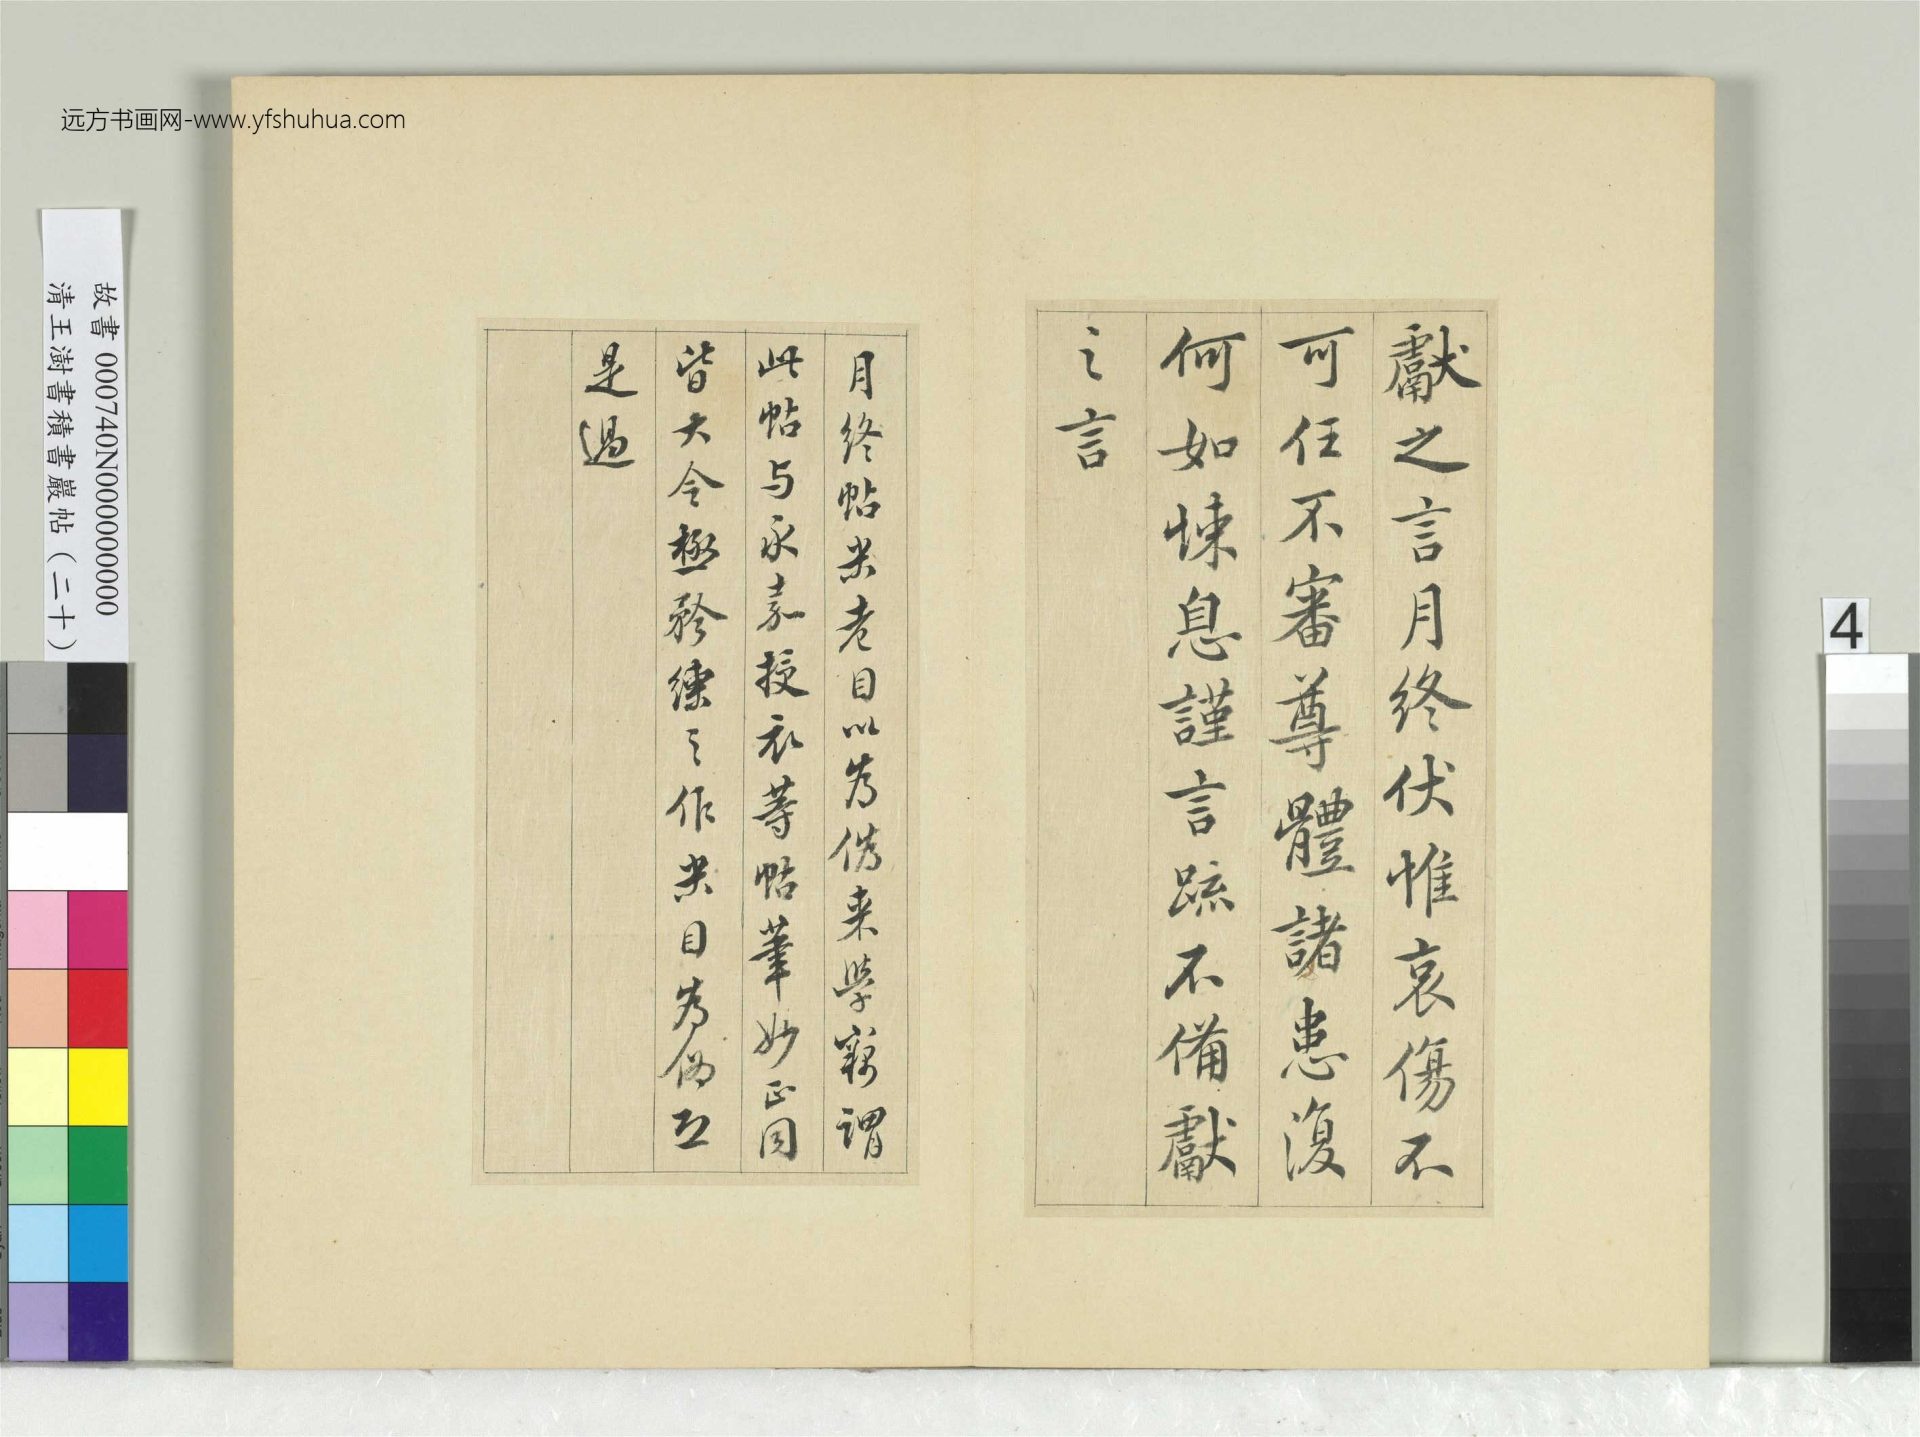 远方书画网-www.yfshuhua.com
故書 000740N000000000
清王澍書積書巖帖（二十）
4
獻之言月終伏惟哀傷不
可任不審尊體諸患復
何如悚息謹言疏不備獻
之言
月終帖米老目以為偽来學竊謂
此帖与永嘉授衣等帖筆妙正同
皆大令極矜練之作米目為偽正
是過